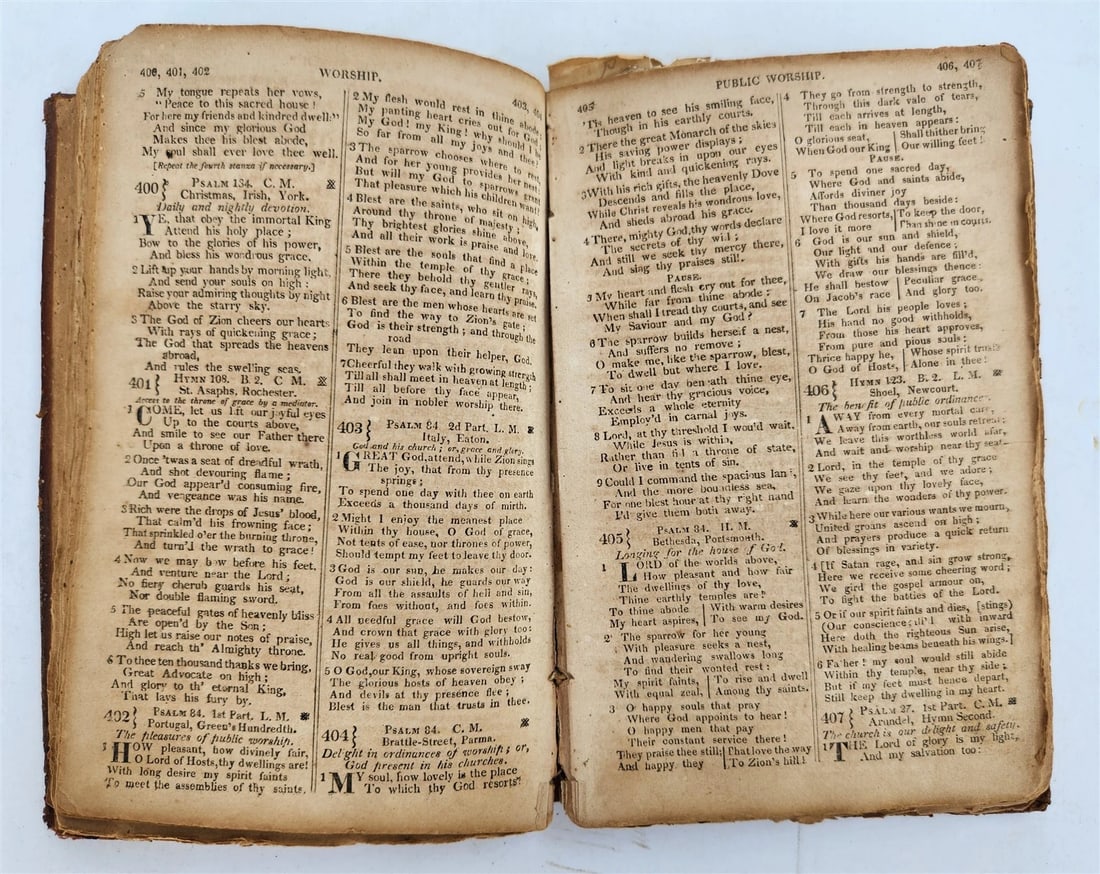 400, 401, 402
WORSHIP.
5 My tongue repeats her vows,
"Peace to this sacred house!
For here my friends and kindred dwell:"
And since my glorious God
Makes thee his blest abode,
My soul shall ever love thee well.
[Repeat the fourth stanza if necessary.]
400} PSALM 134. C. M.
Christmas, Irish, York.
Daily and nightly devotion.
1 YE, that obey the immortal King
Attend his holy place;
Bow to the glories of his power,
And bless his wondrous grace.
2 Lift up your hands by morning light,
And send your souls on high:
Raise your admiring thoughts by night
Above the starry sky.
3 The God of Zion cheers our hearts
With rays of quickening grace;
The God that spreads the heavens
abroad,
And rules the swelling seas.
401} HYMN 108. B. 2. C M.
St. Asaphs, Rochester.
Access to the throne of grace by a mediator.
1 COME, let us lift our joyful eyes
Up to the courts above,
And smile to see our Father there
Upon a throne of love.
2 Once 'twas a seat of dreadful wrath,
And shot devouring flame;
Our God appear'd consuming fire,
And vengeance was his name.
3 Rich were the drops of Jesus' blood,
That calm'd his frowning face;
That sprinkled o'er the burning throne,
And turn'd the wrath to grace!
4 Now we may bow before his feet,
And venture near the Lord;
No fiery cherub guards his seat,
Nor double flaming sword.
5 The peaceful gates of heavenly bliss
Are open'd by the Son;
High let us raise our notes of praise,
And reach th' Almighty throne.
6 To thee ten thousand thanks we bring,
Great Advocate on high;
And glory to th' eternal King,
That lays his fury by.
402} PSALM 84. 1st Part. L. M.
Portugal, Green's Hundredth.
The pleasures of public worship.
1 HOW pleasant, how divinely fair,
O Lord of Hosts, thy dwellings are!
With long desire my spirit faints
To meet the assemblies of thy saints.
403,
2 My flesh would rest in thine abode,
My panting heart cries out for God;
My God! my King! why should I be
So far from all my joys and thee!
3 The sparrow chooses where to rest,
And for her young provides her nest:
But will my God to sparrows grant
That pleasure which his children want?
4 Blest are the saints, who sit on high,
Around thy throne of majesty;
Thy brightest glories shine above,
And all their work is praise and love.
5 Blest are the souls that find a place
Within the temple of thy grace;
There they behold thy gentler rays,
And seek thy face, and learn thy praise.
6 Blest are the men whose hearts are set
To find the way to Zion's gate;
God is their strength; and through the
road
They lean upon their helper, God.
7 Cheerful they walk with growing strength
Till all shall meet in heaven at length;
Till all before thy face appear,
And join in nobler worship there.
403} PSALM 84 2d Part. L. M.
Italy, Eaton.
God and his church; or, grace and glory.
1 GREAT God, attend, while Zion sings
The joy, that from thy presence
springs;
To spend one day with thee on earth
Exceeds a thousand days of mirth.
2 Might I enjoy the meanest place
Within thy house, O God of grace,
Not tents of ease, nor thrones of power,
Should tempt my feet to leave thy door.
3 God is our sun, he makes our day:
God is our shield, he guards our way
From all the assaults of hell and sin,
From foes without, and foes within.
4 All needful grace will God bestow,
And crown that grace with glory too:
He gives us all things, and withholds
No real good from upright souls.
5 O God, our King, whose sovereign sway
The glorious hosts of heaven obey;
And devils at thy presence flee;
Blest is the man that trusts in thee.
404} PSALM 84. C. M.
Brattle-Street, Parma.
Delight in ordinances of worship; or,
God present in his churches.
1 MY soul, how lovely is the place
To which thy God resorts!
405
PUBLIC WORSHIP.
406, 407
'Tis heaven to see his smiling face,
Though in his earthly courts.
2 There the great Monarch of the skies
His saving power displays;
And light breaks in upon our eyes
With kind and quickening rays.
3 With his rich gifts, the heavenly Dove
Descends and fills the place,
While Christ reveals his wondrous love,
And sheds abroad his grace.
4 There, mighty God, thy words declare
The secrets of thy will;
And still we seek thy mercy there,
And sing thy praises still.
PAUSE.
5 My heart and flesh cry out for thee,
While far from thine abode:
When shall I tread thy courts, and see
My Saviour and my God?
6 The sparrow builds herself a nest,
And suffers no remove;
O make me, like the sparrow, blest,
To dwell but where I love.
7 To sit one day beneath thine eye,
And hear thy gracious voice,
Exceeds a whole eternity
Employ'd in carnal joys.
8 Lord, at thy threshold I would wait.
While Jesus is within,
Rather than fill a throne of state,
Or live in tents of sin.
9 Could I command the spacious land,
And the more boundless sea,
For one blest hour at thy right hand
I'd give them both away.
405} PSALM 84. H. M.
Bethesda, Portsmonth.
Longing for the house of God.
1 LORD of the worlds above,
How pleasant and how fair
The dwellings of thy love,
Thine earthly temples are!
To thine abode | With warm desires
My heart aspires, | To see my God.
2 The sparrow for her young
With pleasure seeks a nest,
And wandering swallows long
To find their wonted rest:
My spirit faints, | To rise and dwell
With equal zeal, | Among thy saints.
3 O happy souls that pray
Where God appoints to hear!
O happy men that pay
Their constant service there!
They praise thee still; | That love the way
And happy they | To Zion's hill!
4 They go from strength to strength,
Through this dark vale of tears,
Till each arrives at length,
Till each in heaven appears:
O glorious seat, | Shall thither bring
When God our King | Our willing feet!
PAUSE.
5 To spend one sacred day,
Where God and saints abide,
Affords diviner joy
Than thousand days beside:
Where God resorts, | To keep the door,
I love it more | Than shine in courts.
6 God is our sun and shield,
Our light and our defence;
With gifts his hands are fill'd,
We draw our blessings thence:
He shall bestow | Peculiar grace
On Jacob's race | And glory too.
7 The Lord his people loves;
His hand no good withholds,
From those his heart approves,
From pure and pious souls:
Thrice happy he, | Whose spirit trusts
O God of Hosts, | Alone in thee!
406} HYMN 123. B. 2. L. M.
Shoel, Newcourt.
The benefit of public ordinance.
1 AWAY from every mortal care,
Away from earth, our souls retreat:
We leave this worthless world afar,
And wait and worship near thy seat
2 Lord, in the temple of thy grace
We see thy feet, and we adore;
We gaze upon thy lovely face,
And learn the wonders of thy power.
3 While here our various wants we mourn,
United groans ascend on high;
And prayers produce a quick return
Of blessings in variety.
4 [If Satan rage, and sin grow strong,
Here we receive some cheering word;
We gird the gospel armour on,
To fight the battles of the Lord.
5 Or if our spirit faints and dies, (stings)
(Our conscience gall'd with inward
Here doth the righteous Sun arise,
With healing beams beneath his wings.]
6 Father! my soul would still abide
Within thy temple, near thy side;
But if my feet must hence depart,
Still keep thy dwelling in my heart.
407} PSALM 27. 1st Part. C. M.
Arundel, Hymn Second.
The church is our delight and safety.
1 THE Lord of glory is my light,
And my salvation too: